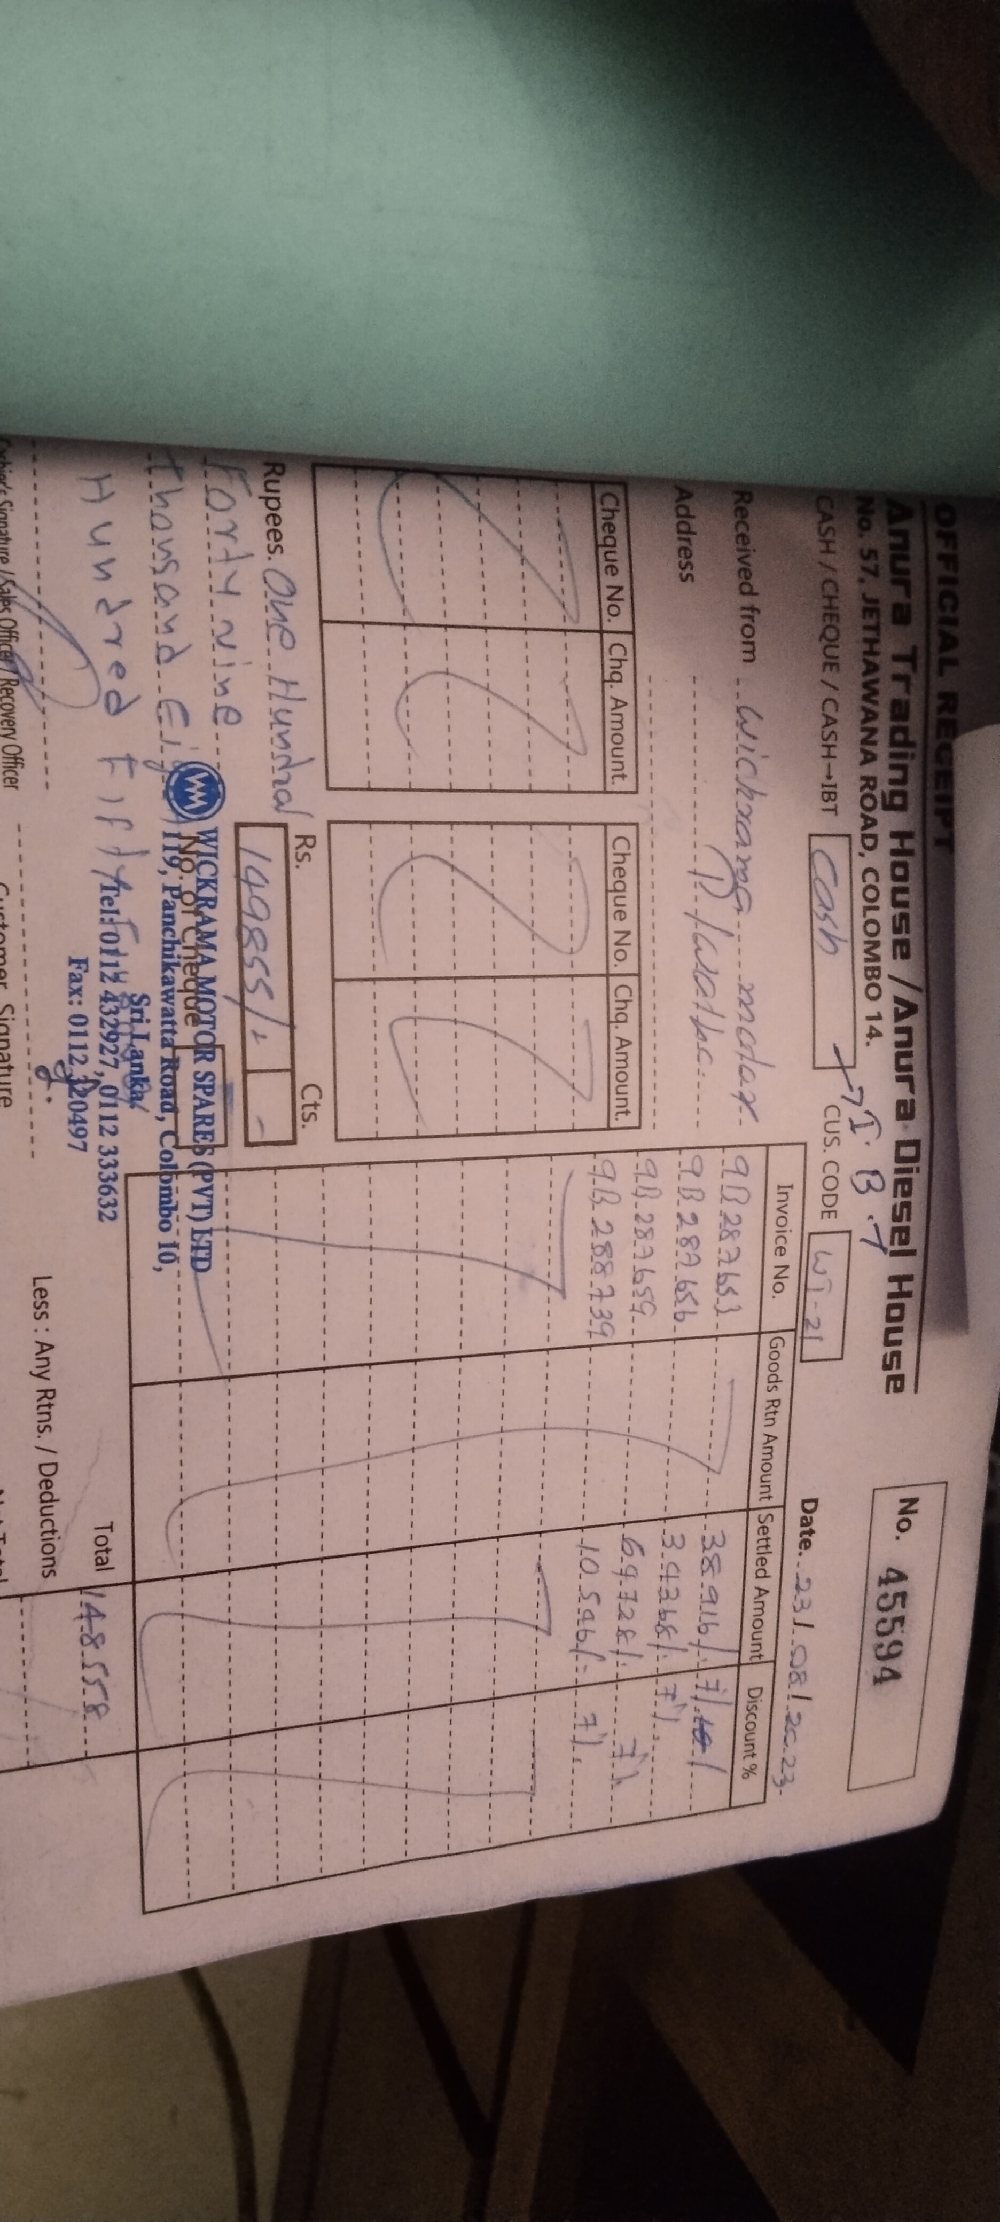 OFFICIAL RECEIPT
Anura Trading House / Anura Diesel House
No. 57, JETHAWANA ROAD, COLOMBO 14.
No. 45594
CASH / CHEQUE / CASH→IBT Cash → I.B.T
CUS. CODE WI-21
Date. 23/08/2023
Received from Wickrama motor
Address P/watha
Cheque No. Chq. Amount Cheque No. Chq. Amount
Invoice No. Goods Rtn Amount Settled Amount Discount %
9B 287653 38916/. 7/.
9B 287656 34368/. 7/.
9B 287659 64728/. 7/.
9B 288739 10546/- 7/.
Rupees. One Hundred
Forty nine
thousand Eight
Hundred Fifty Five
Rs. Cts.
149855/= -
No. of Cheque
WICKRAMA MOTOR SPARES (PVT) LTD
119, Panchikawatta Road, Colombo 10,
Sri Lanka
Tel: 0112 432927, 0112 333632
Fax: 0112 320497
Total 148558
Less : Any Rtns. / Deductions
Cashier's Signature / Sales Officer / Recovery Officer
Customer Signature
Net Total